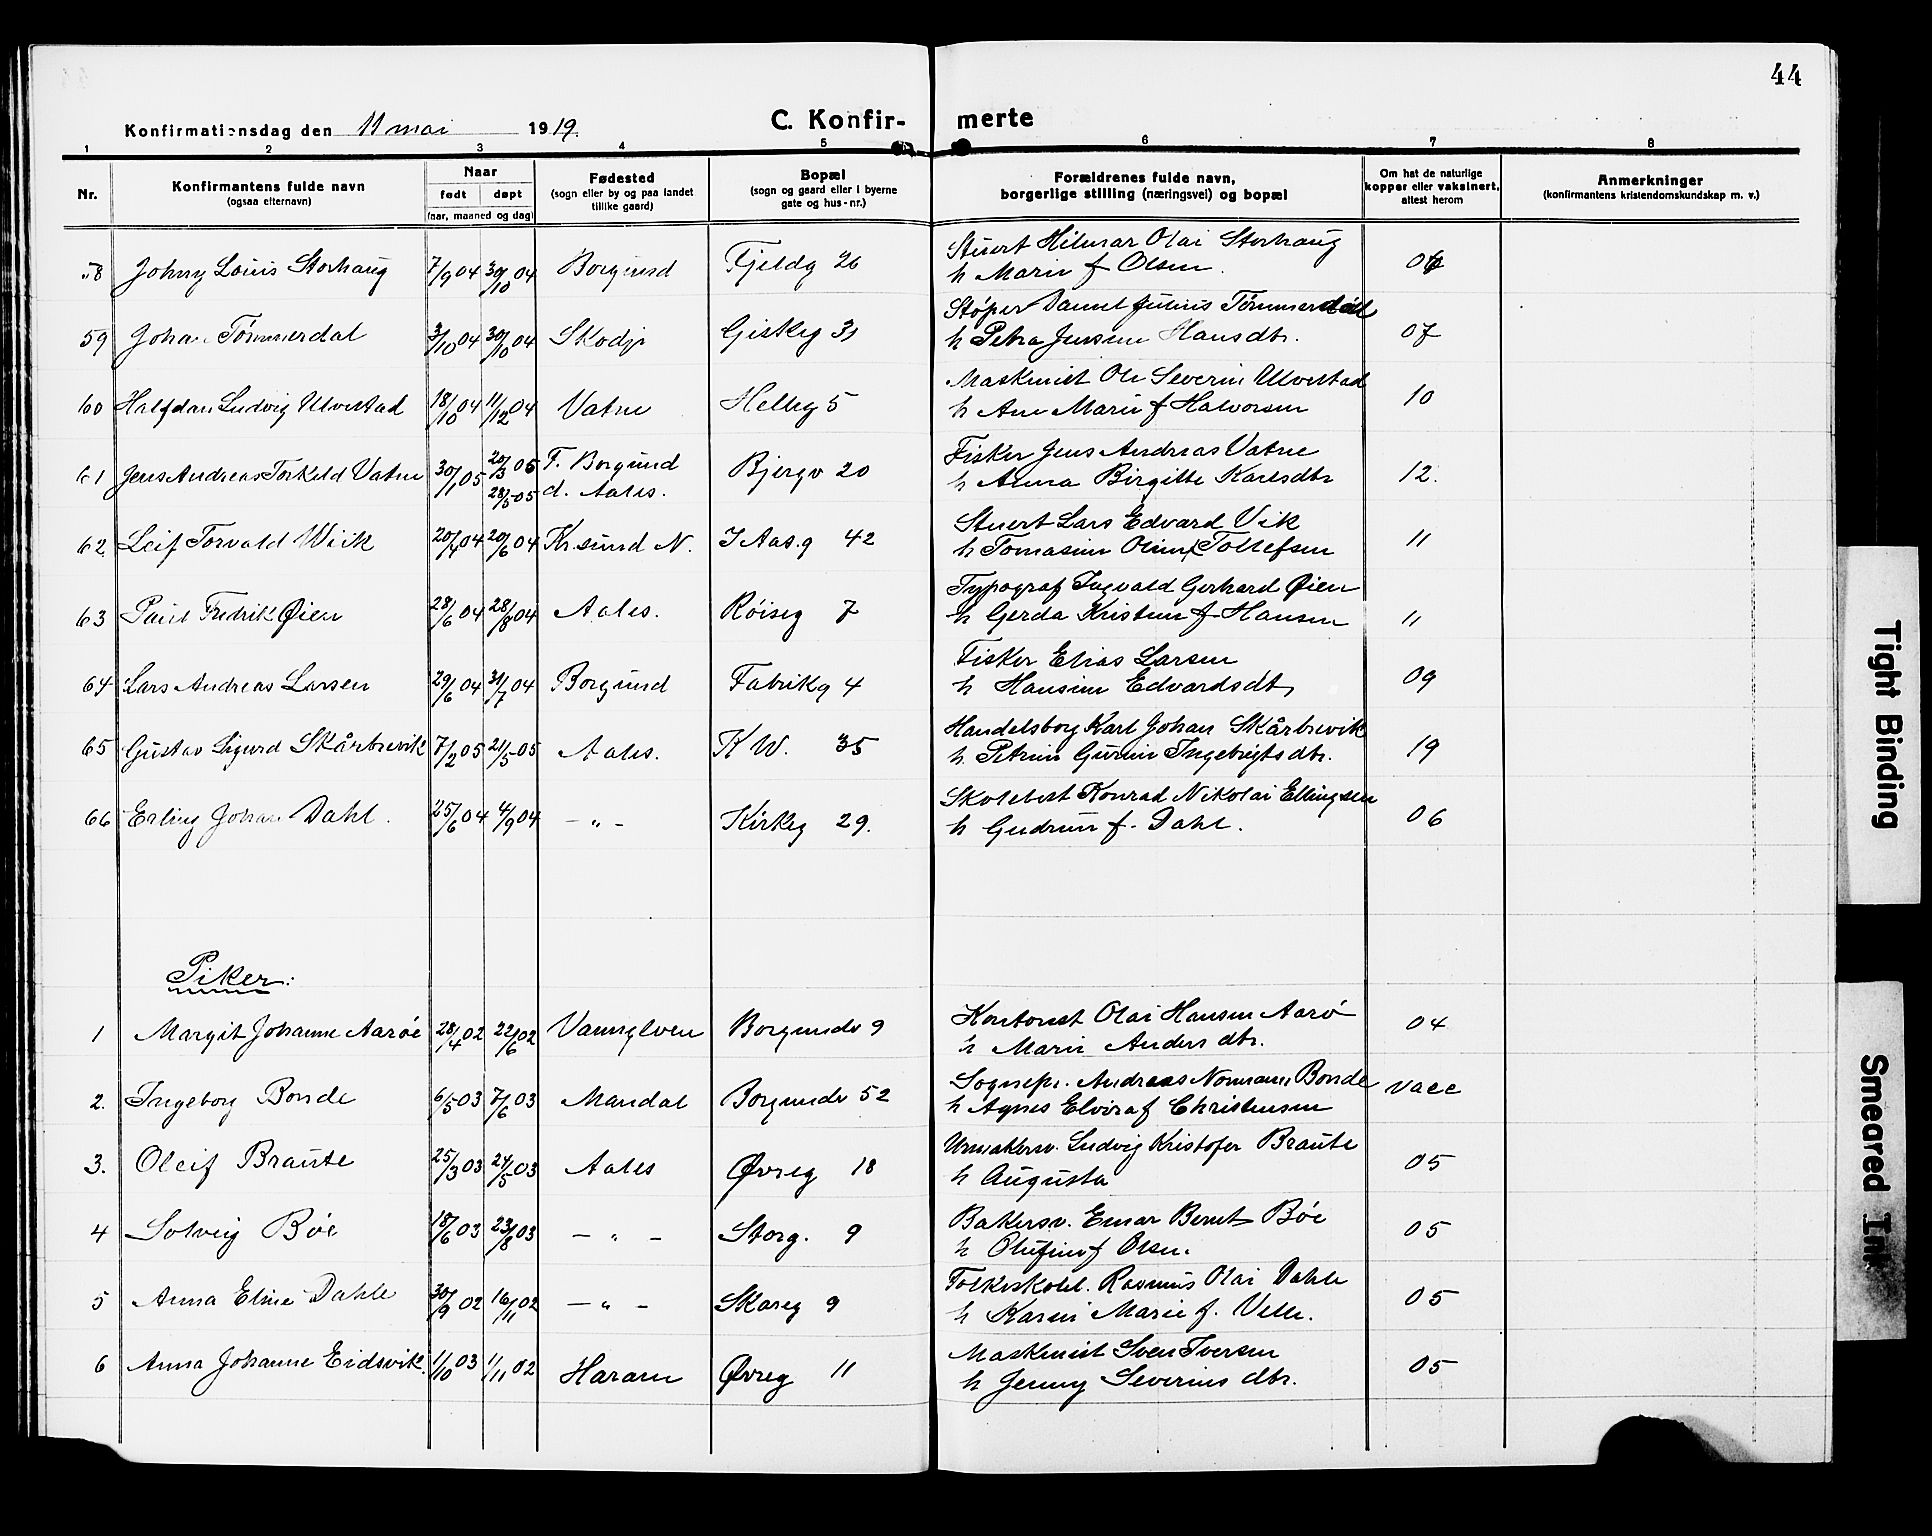 44
Konfirmationsdag den 11 mai 1919.
C. Konfirmerte
1 2 3 4 5 6 7 8
Nr. Konfirmantens fulde navn (ogsaa efternavn) Naar født døpt (aar, maaned og dag) Fødested (sogn eller by og paa landet tillike gaard) Bopæl (sogn og gaard eller i byerne gate og hus-nr.) Forældrenes fulde navn, borgerlige stilling (næringsvei) og bopæl Om hat de naturlige kopper eller vaksinert, attest herom Anmerkninger (konfirmantens kristendomskundskap m. v.)
Stuert Hilmar Olai Storhaug
58 Johny Louis Storhaug 7/9 04 30/10 04 Borgund Fjeldg 26 h Marie f Olsen. 06
Støper Daniel Julius Tømmerdal
59 Johan Tømmerdal 3/10 04 30/10 04 Skodje Giskeg 31 h Petra Jensine Hansdtr. 07
Maskinist Ole Severin Ulvestad
60 Halfdan Ludvig Ulvestad 18/10 04 11/12 04 Vatne Helleg 5 h Ane Marie f Halvorsen 10
Fisker Jens Andreas Vatne
61 Jens Andreas Torkeld Vatne 30/1 05 20/3 05 F. Borgund Bjergv 20 h Anna Birgitte Karlsdtr 12.
28/5-05 d. Aales.
Stuert Lars Edvard Vik
62 Leif Torvald Wiik 20/4 04 20/6 04 Kr.sund N. I Aas.g 42 h Tomasine Oline f Tollefsen 11
Typograf Ingvald Gerhard Øien
63 Paul Fredrik Øien 28/6 04 28/8 04 Aales. Røiseg 7 h Gerda Kristine f Hansen 11
Fisker Elias Larsen
64 Lars Andreas Larsen 29/6 04 31/7 04 Borgund Fabrikg 4 h Hansine Edvardsdtr 09
Handelsborg Karl Johan Skårbrevik
65 Gustav Sigurd Skårbrevik 7/2 05 21/5-05 Aales. K W. 35 h. Petrine Gurine Ingebrigtsdtr. 19
Skolebest Konrad Nikolai Ellingsen
66 Erling Johan Dahl. 25/6 04 4/9 04 - " - Kirkeg 29. h Gudrun f. Dahl. 06
Piker:
Kontorist Olai Hansen Aarø
1 Margit Johanne Aarøe 28/4 02 22/6 02 Vannylven Borgundv 9 h Marie Andersdtr. 04
Sognepr. Andreas Normann Bonde
2. Ingeborg Bonde 6/5 03 7/6 03 Mandal Borgundv 52 h Agnes Elvira f Christensen vacc
Urmakersv. Ludvig Kristofer Braute
3. Oleif Braute 25/3 03 24/5 03 Aales Øvreg 18 h Augusta 05
Bakersv. Einar Bernt Bøe
4 Solveig Bøe 18/6 03 23/8 03 - " - Storg. 9 h Olufine f Olsen. 05
Folkeskolel. Rasmus Olai Dahle
5 Anna Eline Dahle 30/9 02 16/11 02 - " - Skareg 9 h Karen Marie f. Velle. 05
Maskinist Sven Iversen
6 Anna Johanne Eidsvik. 1/10 03 1/11 02 Haram Øvreg 11 h Jenny Severins dtr. 05
Tight Binding
Smeared Ink